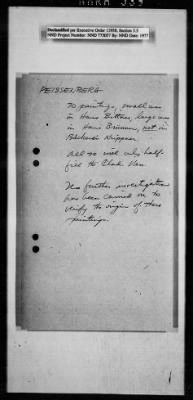 Declassified per Executive Order 12958, Section 3.5
NND Project Number: NND 775057 By: NND Date: 1977
PEISSENBERG
70 paintings, small ones
in Haus Bittner, large ones
in Haus Brünner, not in
All so
half-
fill the
No further investigation
has been carried on to
verify the origin of these
paintings.